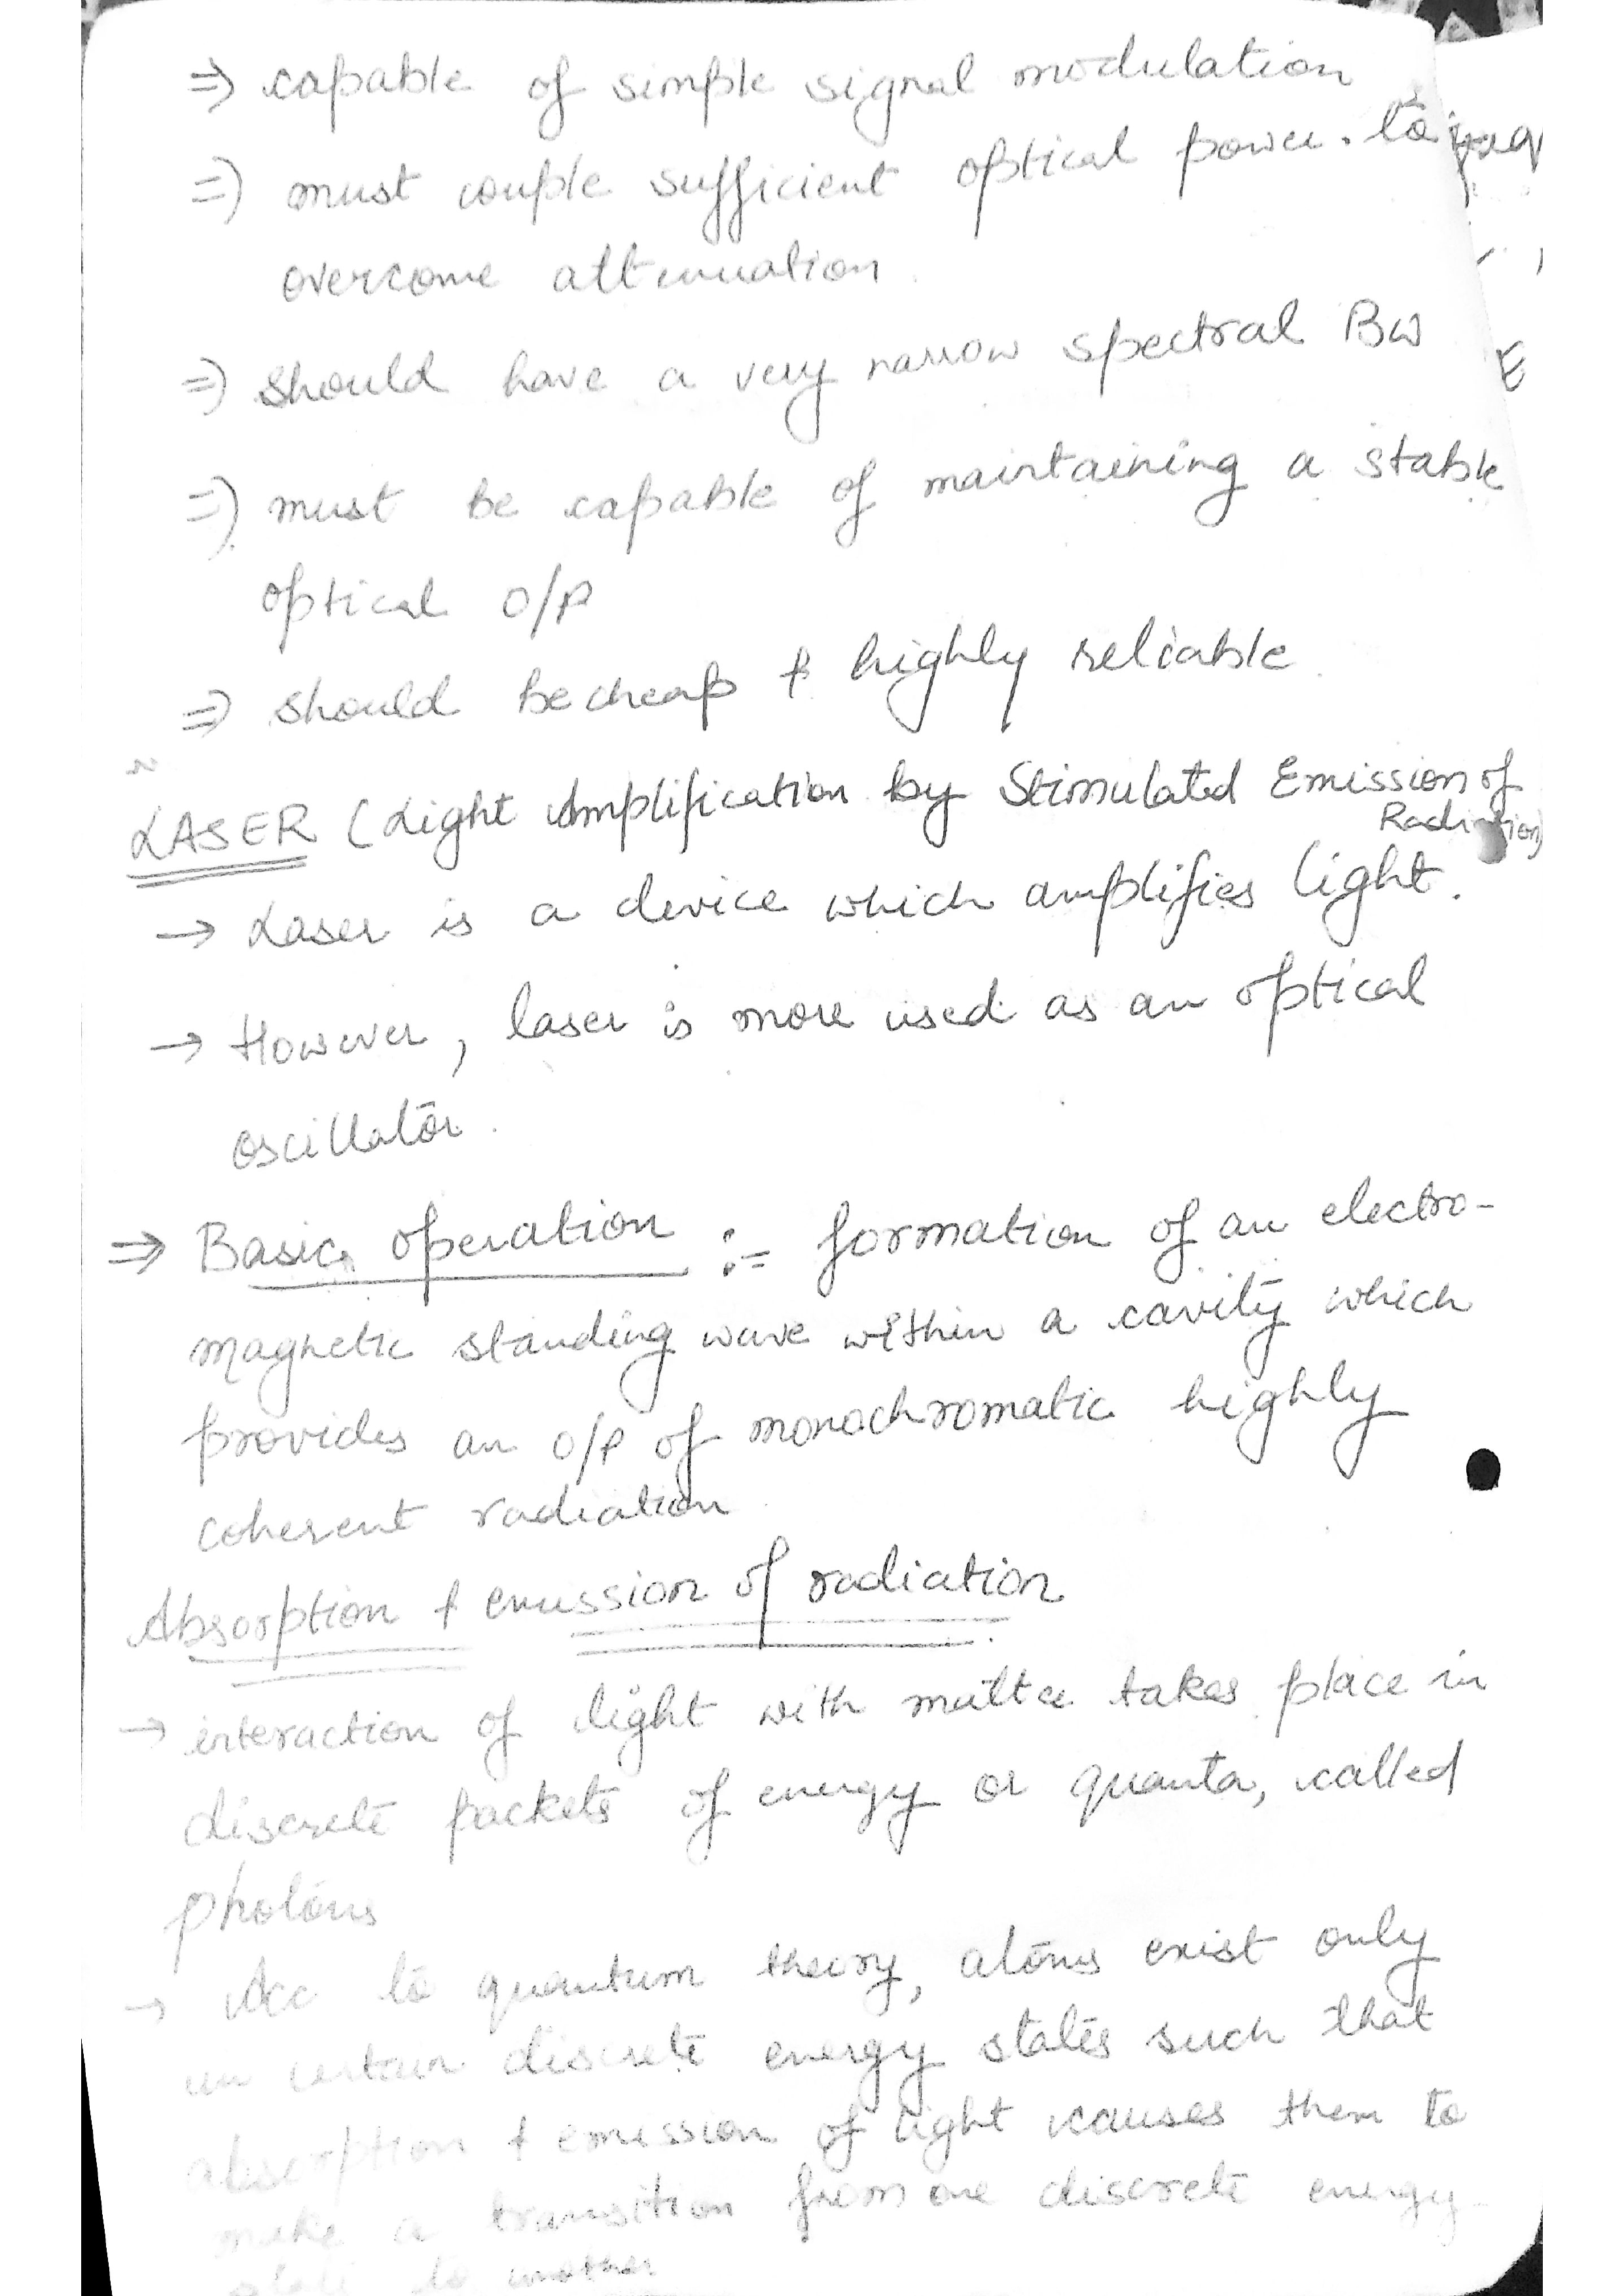 ⇒ capable of simple signal modulation
⇒ must couple sufficient optical power. to
overcome attenuation.
⇒ should have a very narrow spectral BW
⇒ must be capable of maintaining a stable
optical O/P
⇒ should be cheap & highly reliable.
LASER (Light Amplification by Stimulated Emission of
Radiation)
→ Laser is a device which amplifies light.
→ However, laser is more used as an optical
oscillator.
⇒ Basic operation :- formation of an electro-
magnetic standing wave within a cavity which
provides an O/P of monochromatic highly
coherent radiation.
Absorption & emission of radiation
→ interaction of light with matter takes place in
discrete packets of energy or quanta, called
photons
→ Acc to quantum theory, atoms exist only
in certain discrete energy states such that
absorption & emission of light causes them to
make a transition from one discrete energy
state to another